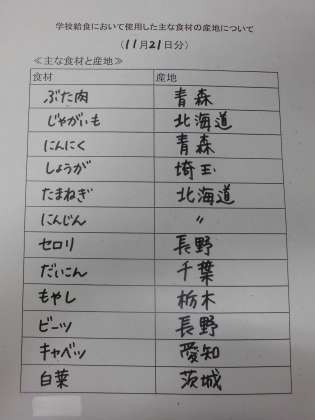 学校給食において使用した主な食材の産地について
（11月21日分）
≪主な食材と産地≫
食材 産地
ぶた肉 青森
じゃがいも 北海道
にんにく 青森
しょうが 埼玉
たまねぎ 北海道
にんじん 〃
セロリ 長野
だいこん 千葉
もやし 栃木
ビーツ 長野
キャベツ 愛知
白菜 茨城